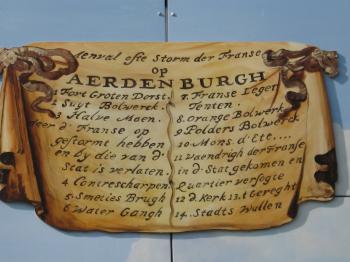 Aenval ofte Storm der Franse
op
AERDENBURGH
1 Fort Groten Dorst.
2 Suyt Bolwerck.
3 Halve Maen.
deer d' Franse op
gestormt hebben
en by die van d'
Stat is verlaten.
4 Contrescharpen
5 Smeties Brugh
6 Water Gangh
7. Franse Leger
Tenten.
8 Orange Bolwerck
9 Polders Bolwerck
10 Mons. d'Ete....
11 Vaendrigh der Franse
in d. Stat gekomen en
Quartier versogte
12 d. Kerk 13. t Gereght
14. Stadts Wallen